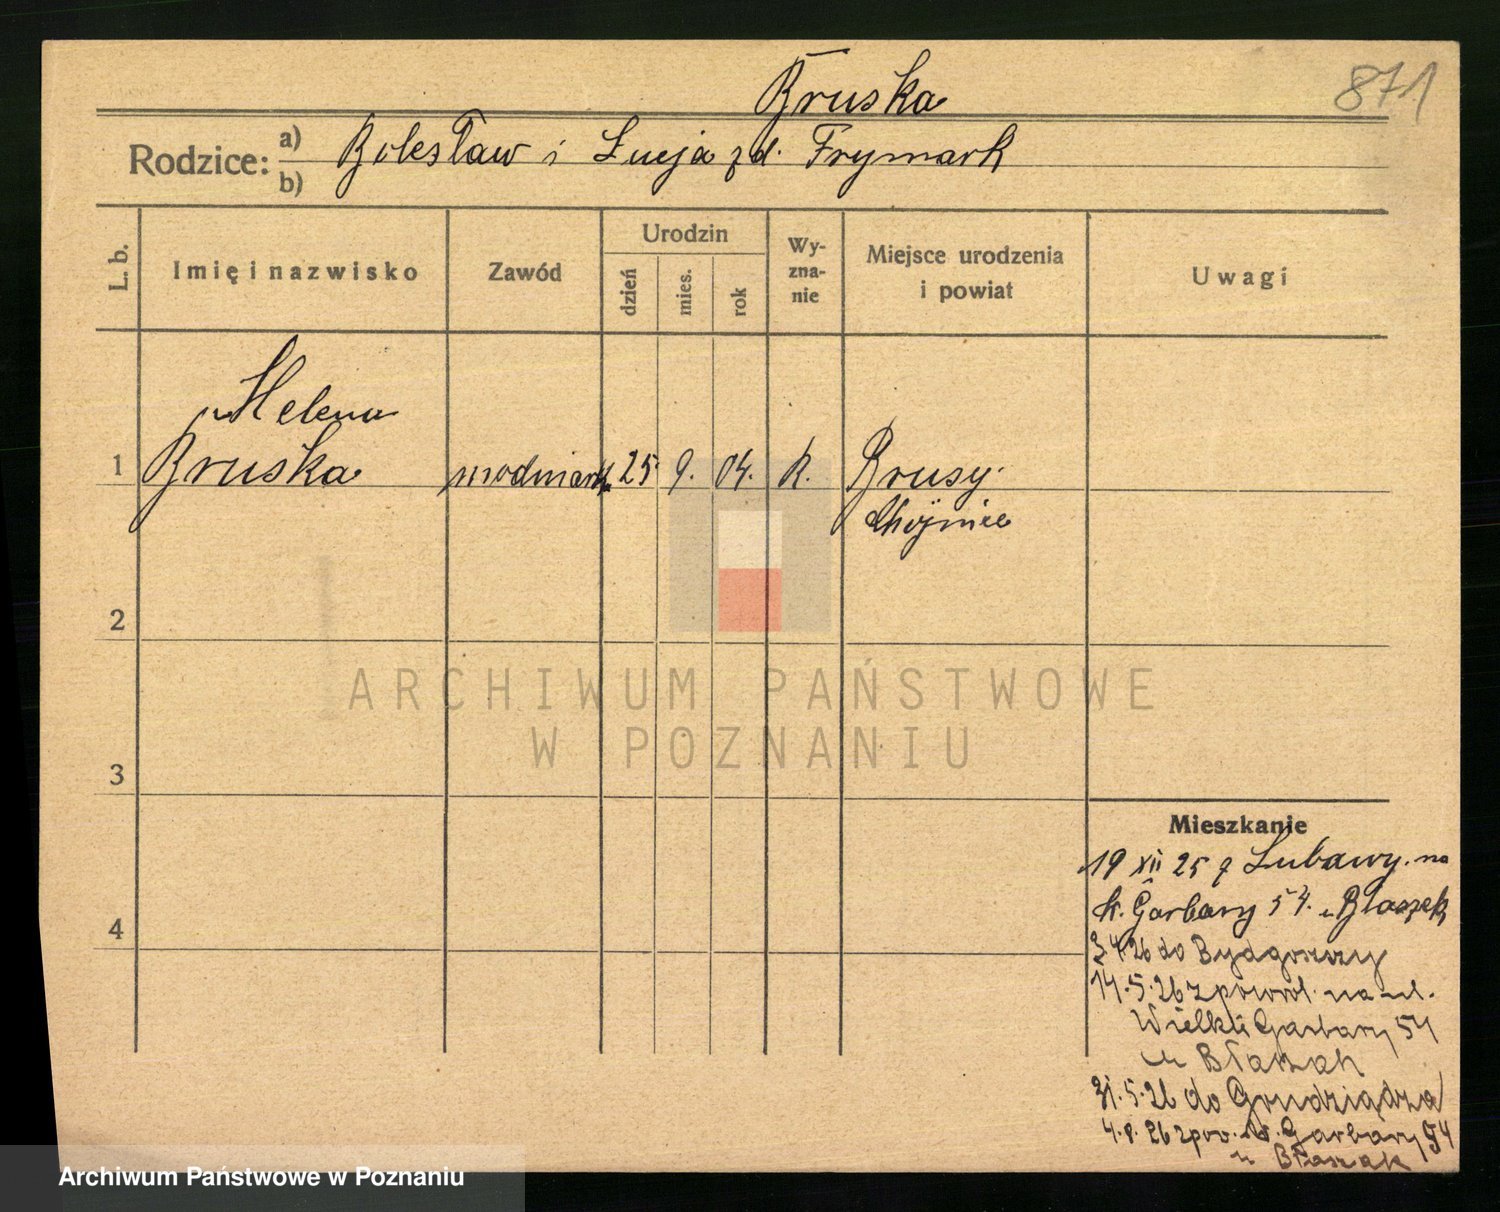 Bruska
871
Rodzice: a) b) Bolesław i Łucja zd. Frymark
L. b. Imię i nazwisko Zawód Urodzin dzień mies. rok Wyznanie Miejsce urodzenia i powiat Uwagi
Helena
1 Bruska modniark. 25. 9. 04. R. Brusy.
Chojnice
2
ARCHIWUM PAŃSTWOWE
W POZNANIU
3
Mieszkanie
19 XII 25 z Lubawy. na
4 W. Garbary 54. u Błaszek
3 4.26 do Bydgoszczy
14.5.26 z powrot. na ul.
Wielkie Garbary 54
u Błaszak
31.5.26 do Grudziądza
4.8.26 z pow. W. Garbary 54
u Błaszak
Archiwum Państwowe w Poznaniu